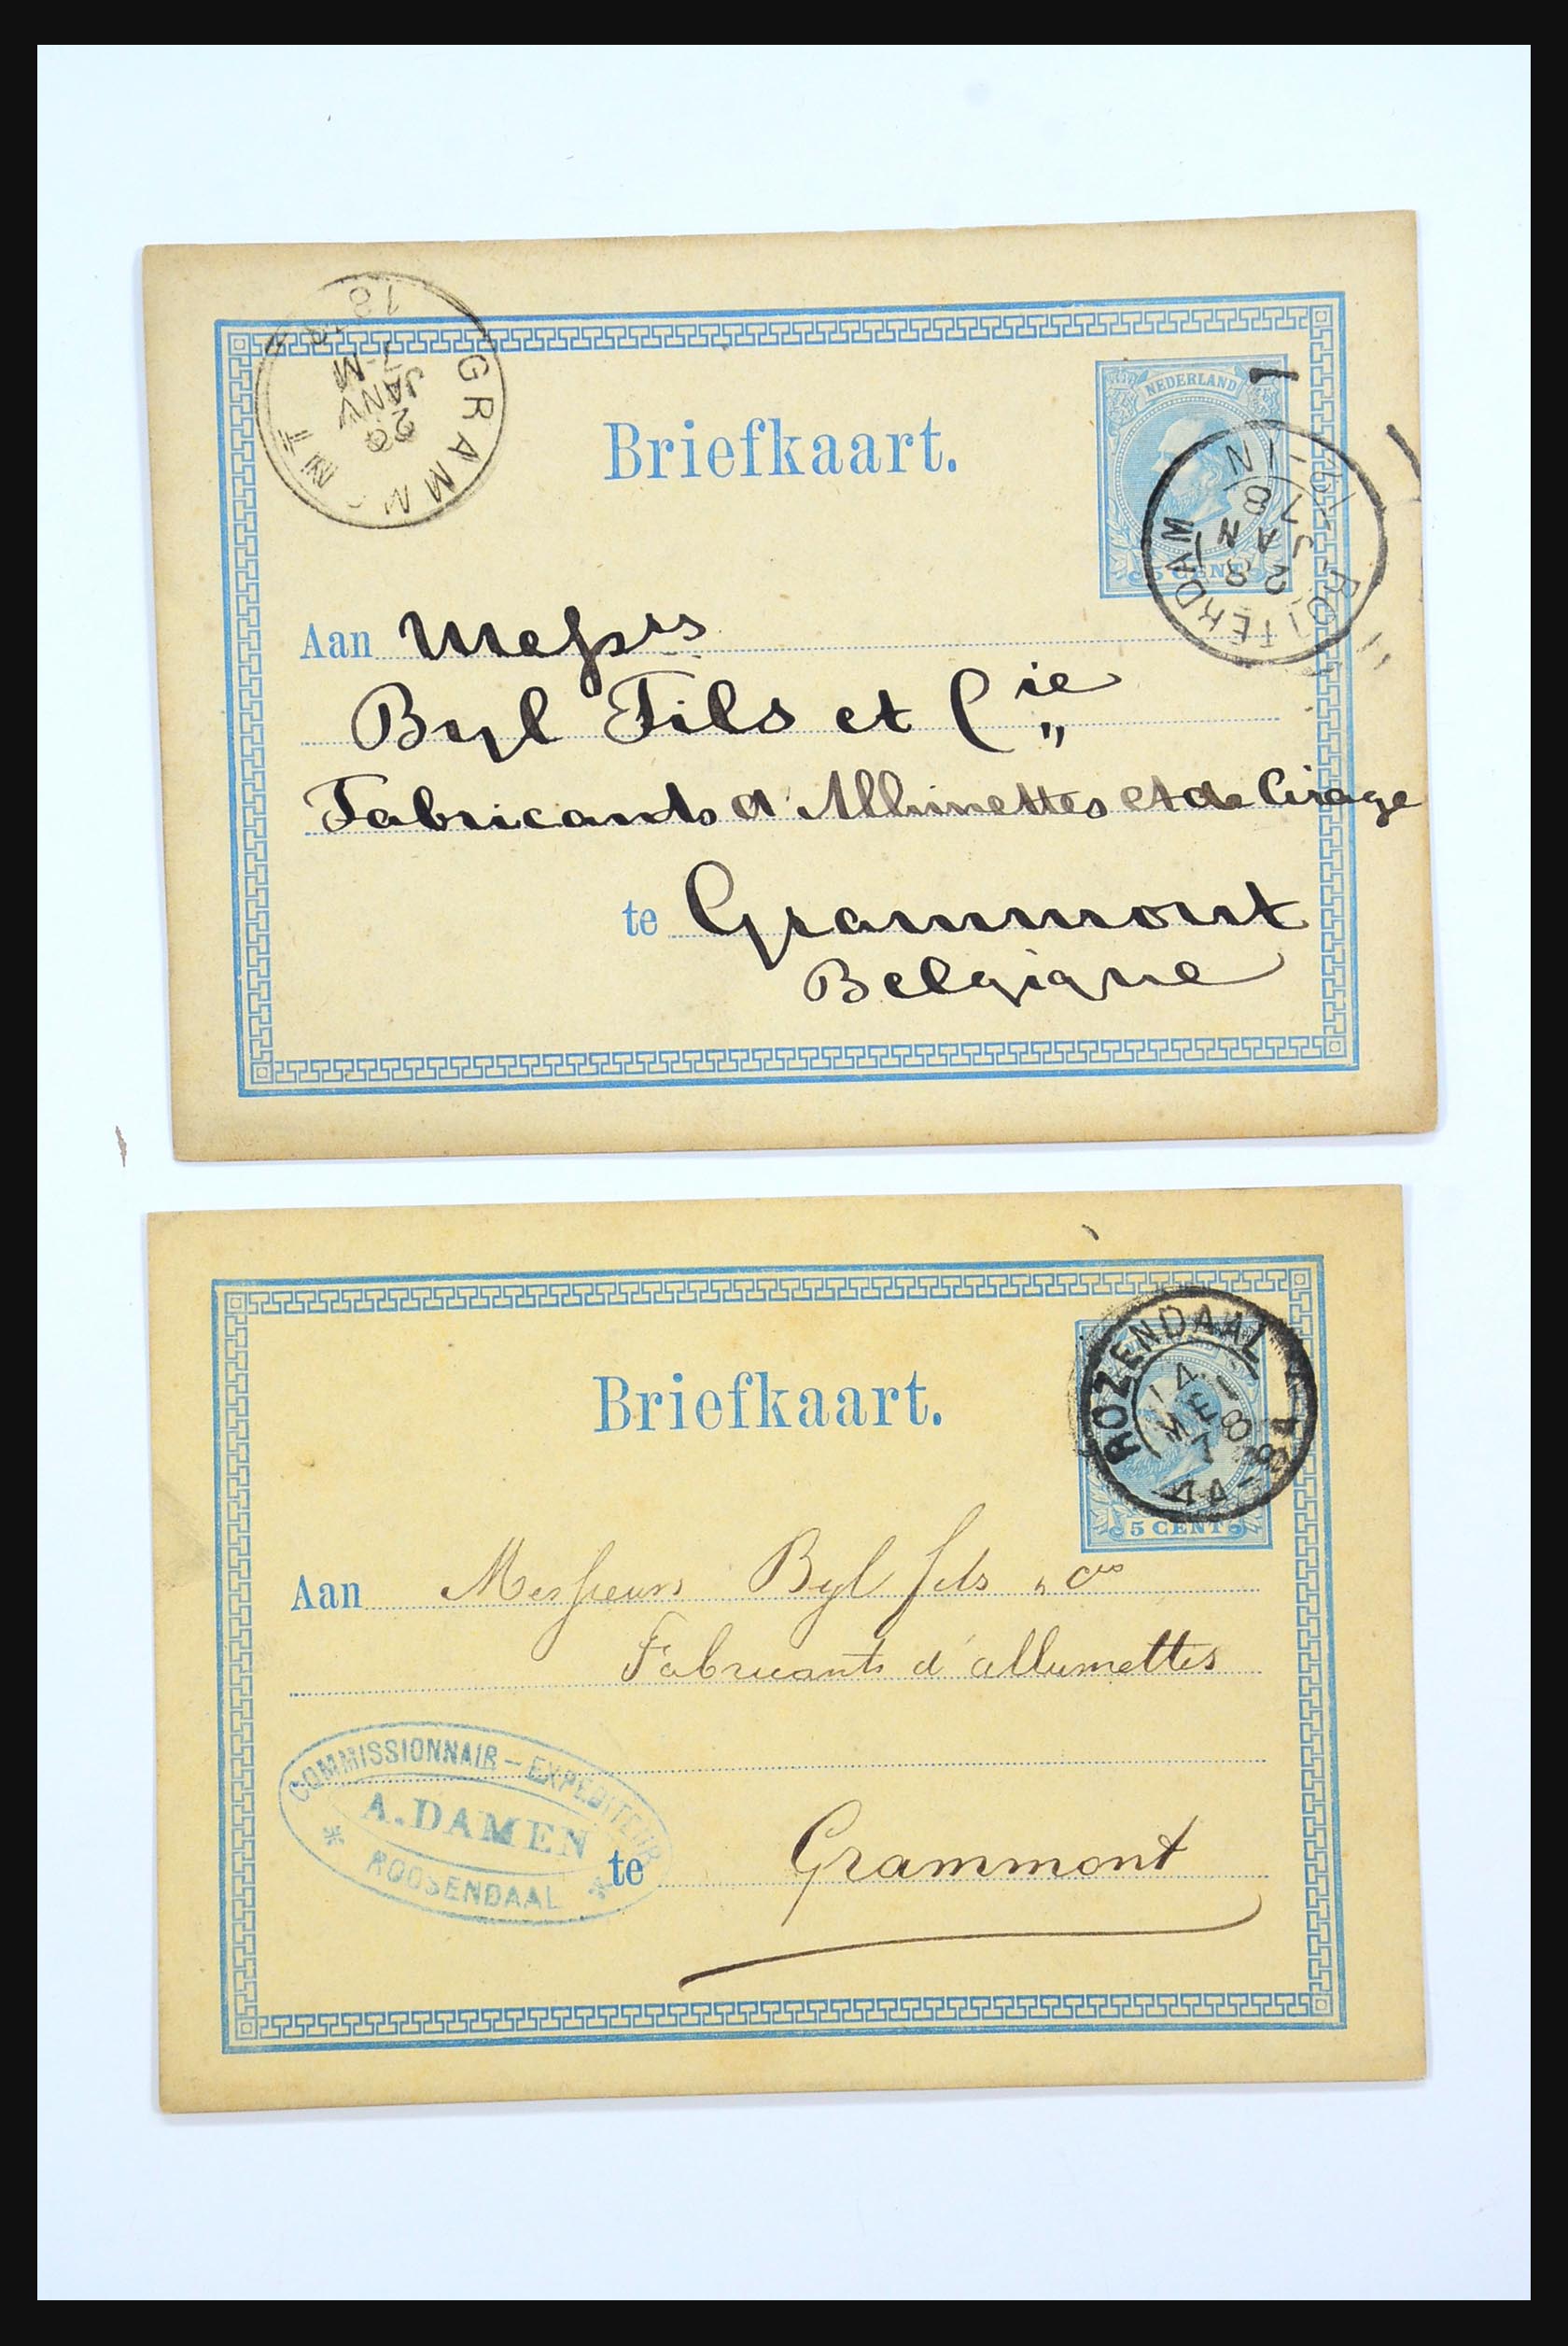 GRAMMONT
7-M
28
JANV
NEDERLAND
5 CENT
ROTTERDAM
28
JAN
Briefkaart.
Aan Messrs
Byl Fils et Cie
Fabricants d'Allumettes et de Cirage
te Grammont
Belgique
ROZENDAAL
14
MEI
84
5 CENT
Briefkaart.
Aan Messieurs Byl fils & Cie
Fabricants d'allumettes
COMMISSIONNAIR - EXPEDITEUR
A. DAMEN
* ROOSENDAAL *
te Grammont